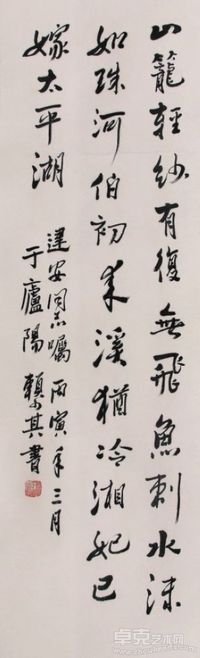 山籠輕紗有復無飛魚刺水沫
如珠河伯初來溪猶冷湘妃已
嫁太平湖
建安同志嘱 丙寅年三月
于廬陽 賴少其書
卓克艺术网